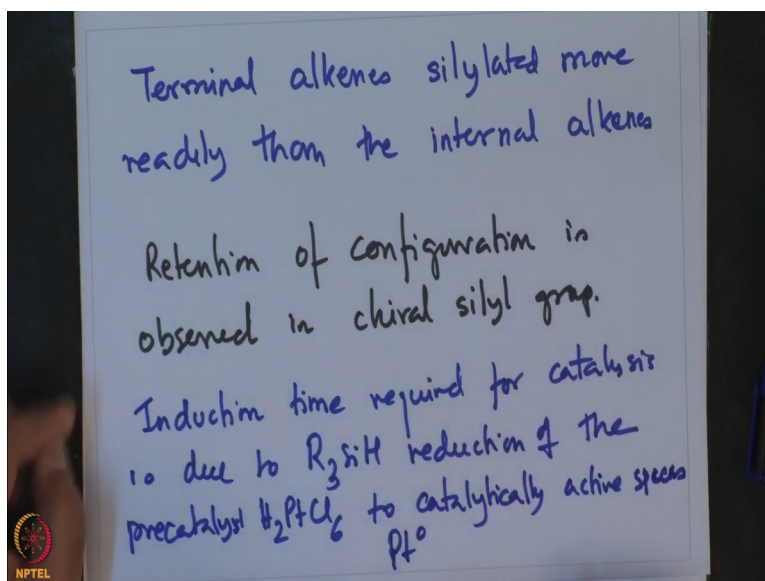 Terminal alkenes silylated more
readily than the internal alkenes
Retention of configuration is
observed in chiral silyl group.
Induction time required for catalysis
is due to R₃SiH reduction of the
precatalyst H₂PtCl₆ to catalytically active species
Pt⁰
NPTEL